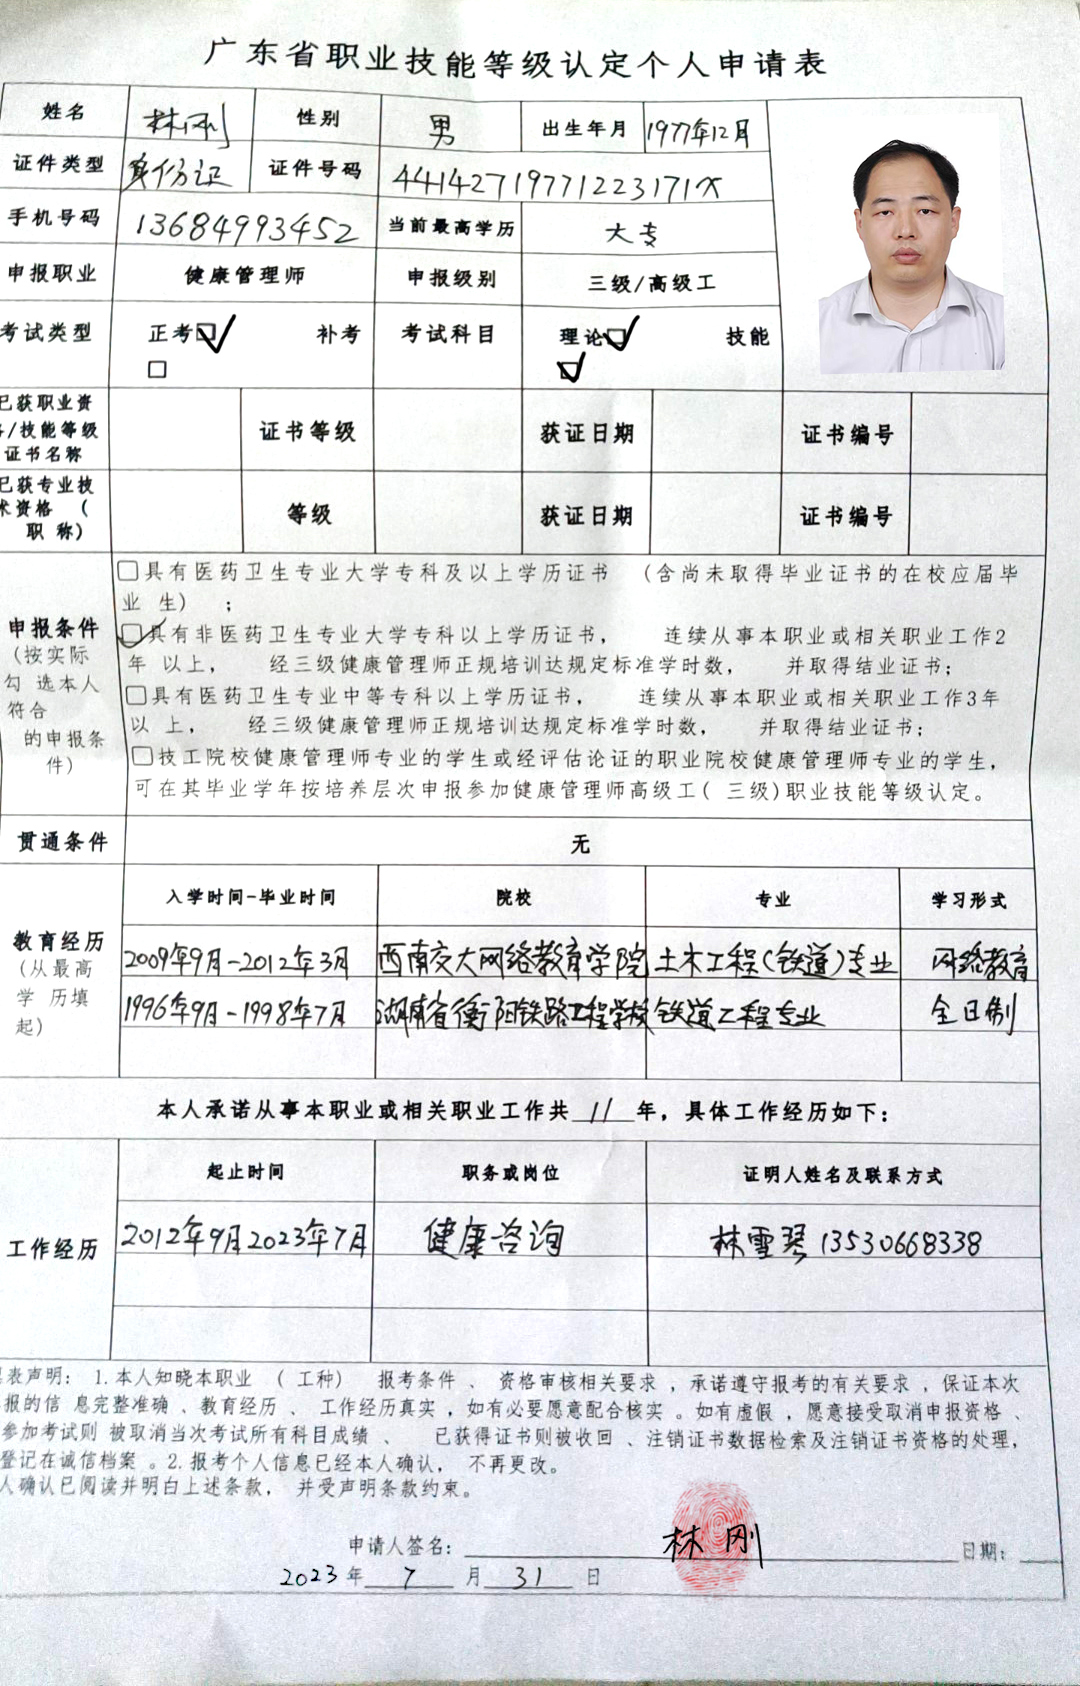 广东省职业技能等级认定个人申请表
姓名 林刚 性别 男 出生年月 1977年12月
证件类型 身份证 证件号码 44142719771223171X
手机号码 13684993452 当前最高学历 大专
申报职业 健康管理师 申报级别 三级/高级工
考试类型 正考☑ 补考 考试科目 理论☑ 技能
□ ☑
已获职业资
格/技能等级 证书等级 获证日期 证书编号
证书名称
已获专业技
术资格 ( 等级 获证日期 证书编号
职 称)
□具有医药卫生专业大学专科及以上学历证书 (含尚未取得毕业证书的在校应届毕
业 生) ;
申报条件
(按实际
勾 选本人
符合
的申报条
件)
☑具有非医药卫生专业大学专科以上学历证书, 连续从事本职业或相关职业工作2
年 以上, 经三级健康管理师正规培训达规定标准学时数, 并取得结业证书;
□具有医药卫生专业中等专科以上学历证书, 连续从事本职业或相关职业工作3年
以 上, 经三级健康管理师正规培训达规定标准学时数, 并取得结业证书;
□技工院校健康管理师专业的学生或经评估论证的职业院校健康管理师专业的学生,
可在其毕业学年按培养层次申报参加健康管理师高级工( 三级)职业技能等级认定。
贯通条件 无
教育经历
(从最高
学 历填
起)
入学时间-毕业时间 院校 专业 学习形式
2009年9月-2012年3月 西南交大网络教育学院 土木工程(铁道)专业 网络教育
1996年9月-1998年7月 湖南省衡阳铁路工程学校 铁道工程专业 全日制
本人承诺从事本职业或相关职业工作共 11 年, 具体工作经历如下:
工作经历
起止时间 职务或岗位 证明人姓名及联系方式
2012年9月2023年7月 健康咨询 林雪琴 13530668338
表声明: 1.本人知晓本职业 ( 工种) 报考条件 、 资格审核相关要求 , 承诺遵守报考的有关要求 , 保证本次
报的信 息完整准确 、教育经历 、 工作经历真实 , 如有必要愿意配合核实 。如有虚假 , 愿意接受取消申报资格 、
参加考试则 被取消当次考试所有科目成绩 、 已获得证书则被收回 、注销证书数据检索及注销证书资格的处理,
登记在诚信档案 。2. 报考个人信息已经本人确认, 不再更改。
人确认已阅读并明白上述条款, 并受声明条款约束。
申请人签名: 林刚 日期:
2023 年 7 月 31 日